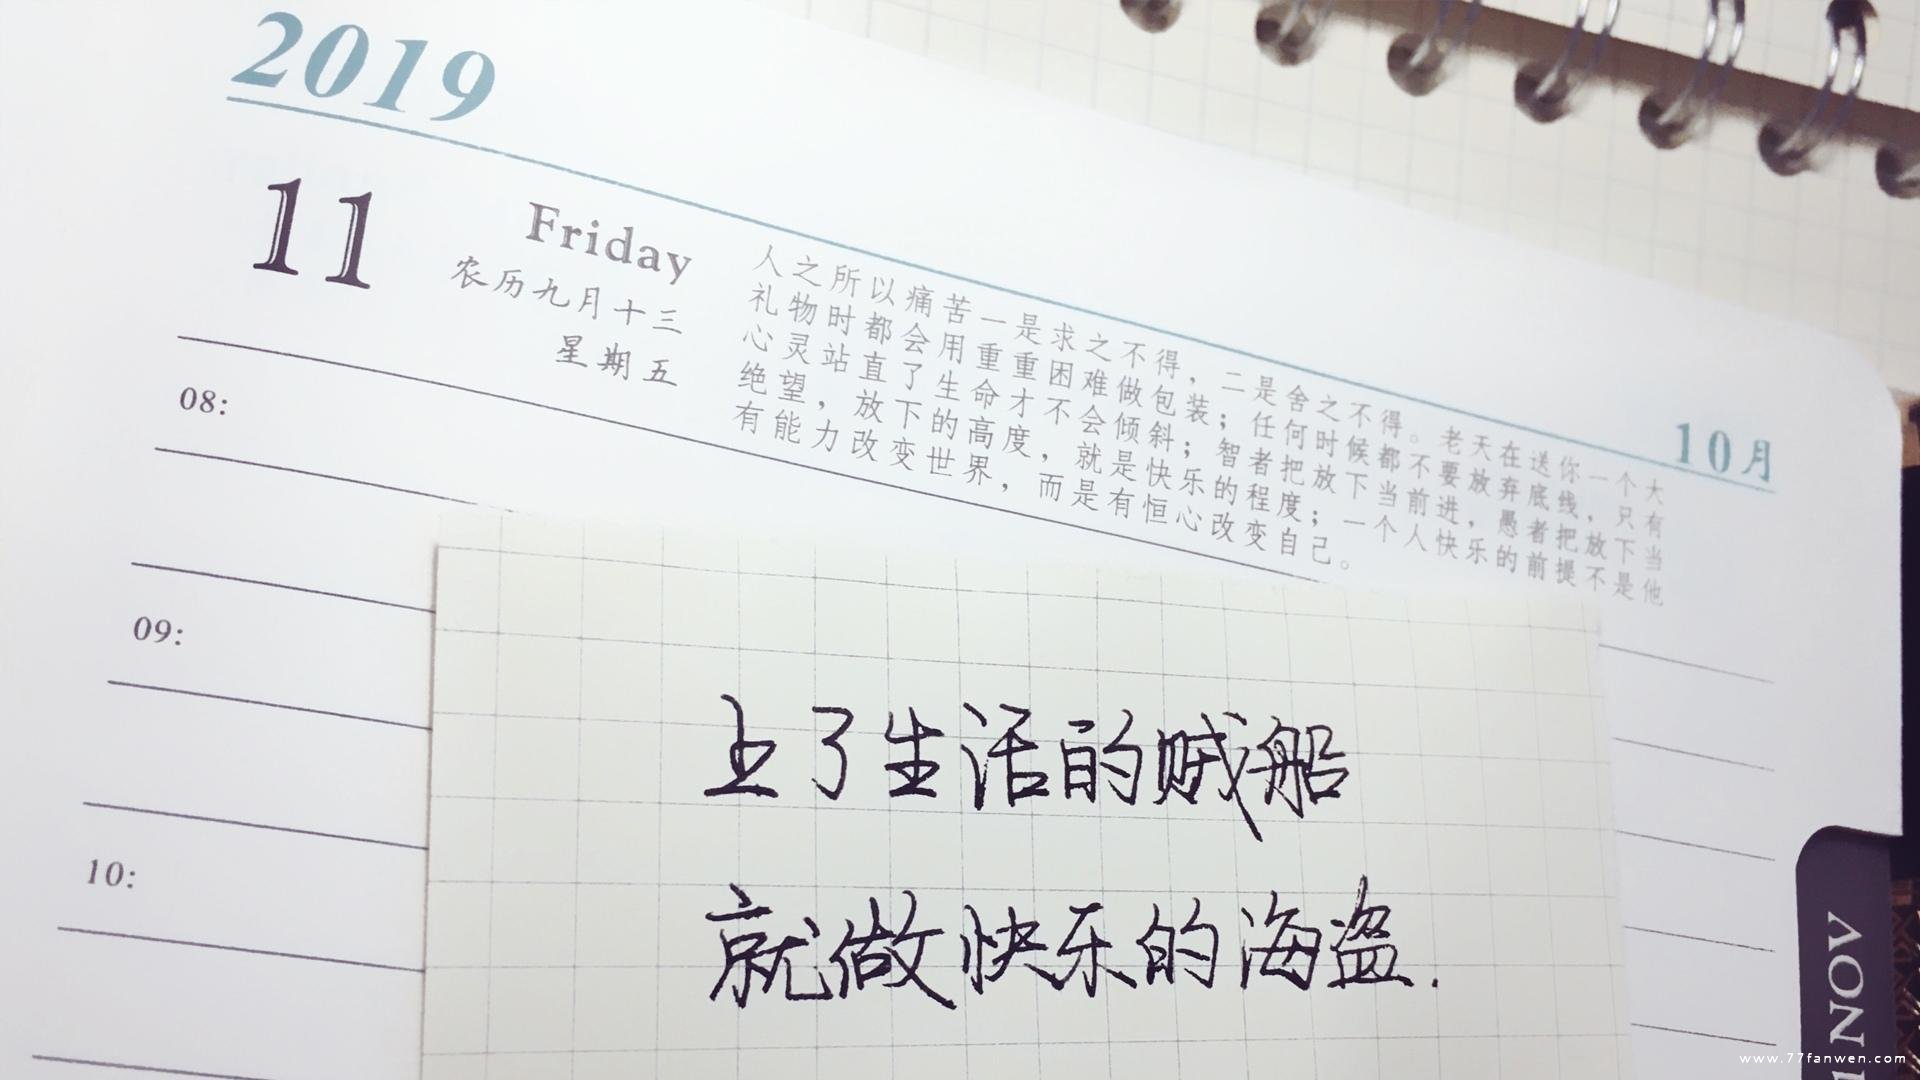 2019
11
Friday
农历九月十三
星期五
10月
人之所以痛苦一是求之不得，二是舍之不得。老天在送你一个大
礼物时都会用重重困难做包装；任何时候都不要放弃底线，只有
心灵站直了生命才不会倾斜；智者把放下当前进，愚者把放下当
绝望，放下的高度，就是快乐的程度；一个人快乐的前提不是他
有能力改变世界，而是有恒心改变自己。
08:
09:
10:
上了生活的贼船
就做快乐的海盗.
11NOV
www.77fanwen.com